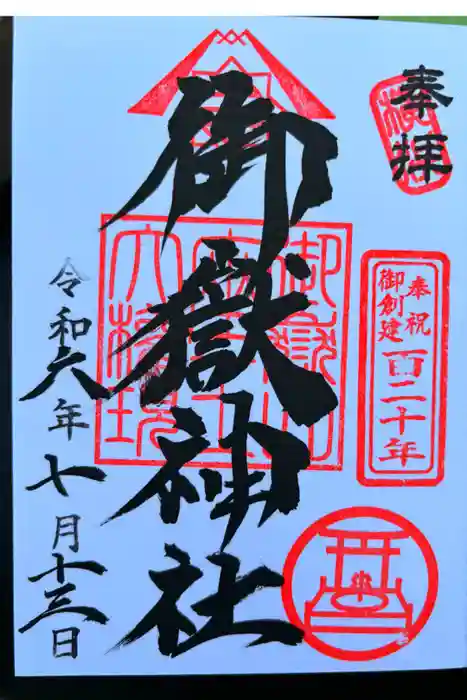 奉拝
奉祝
御創建
百二十年
御嶽神社
令和六年七月十三日